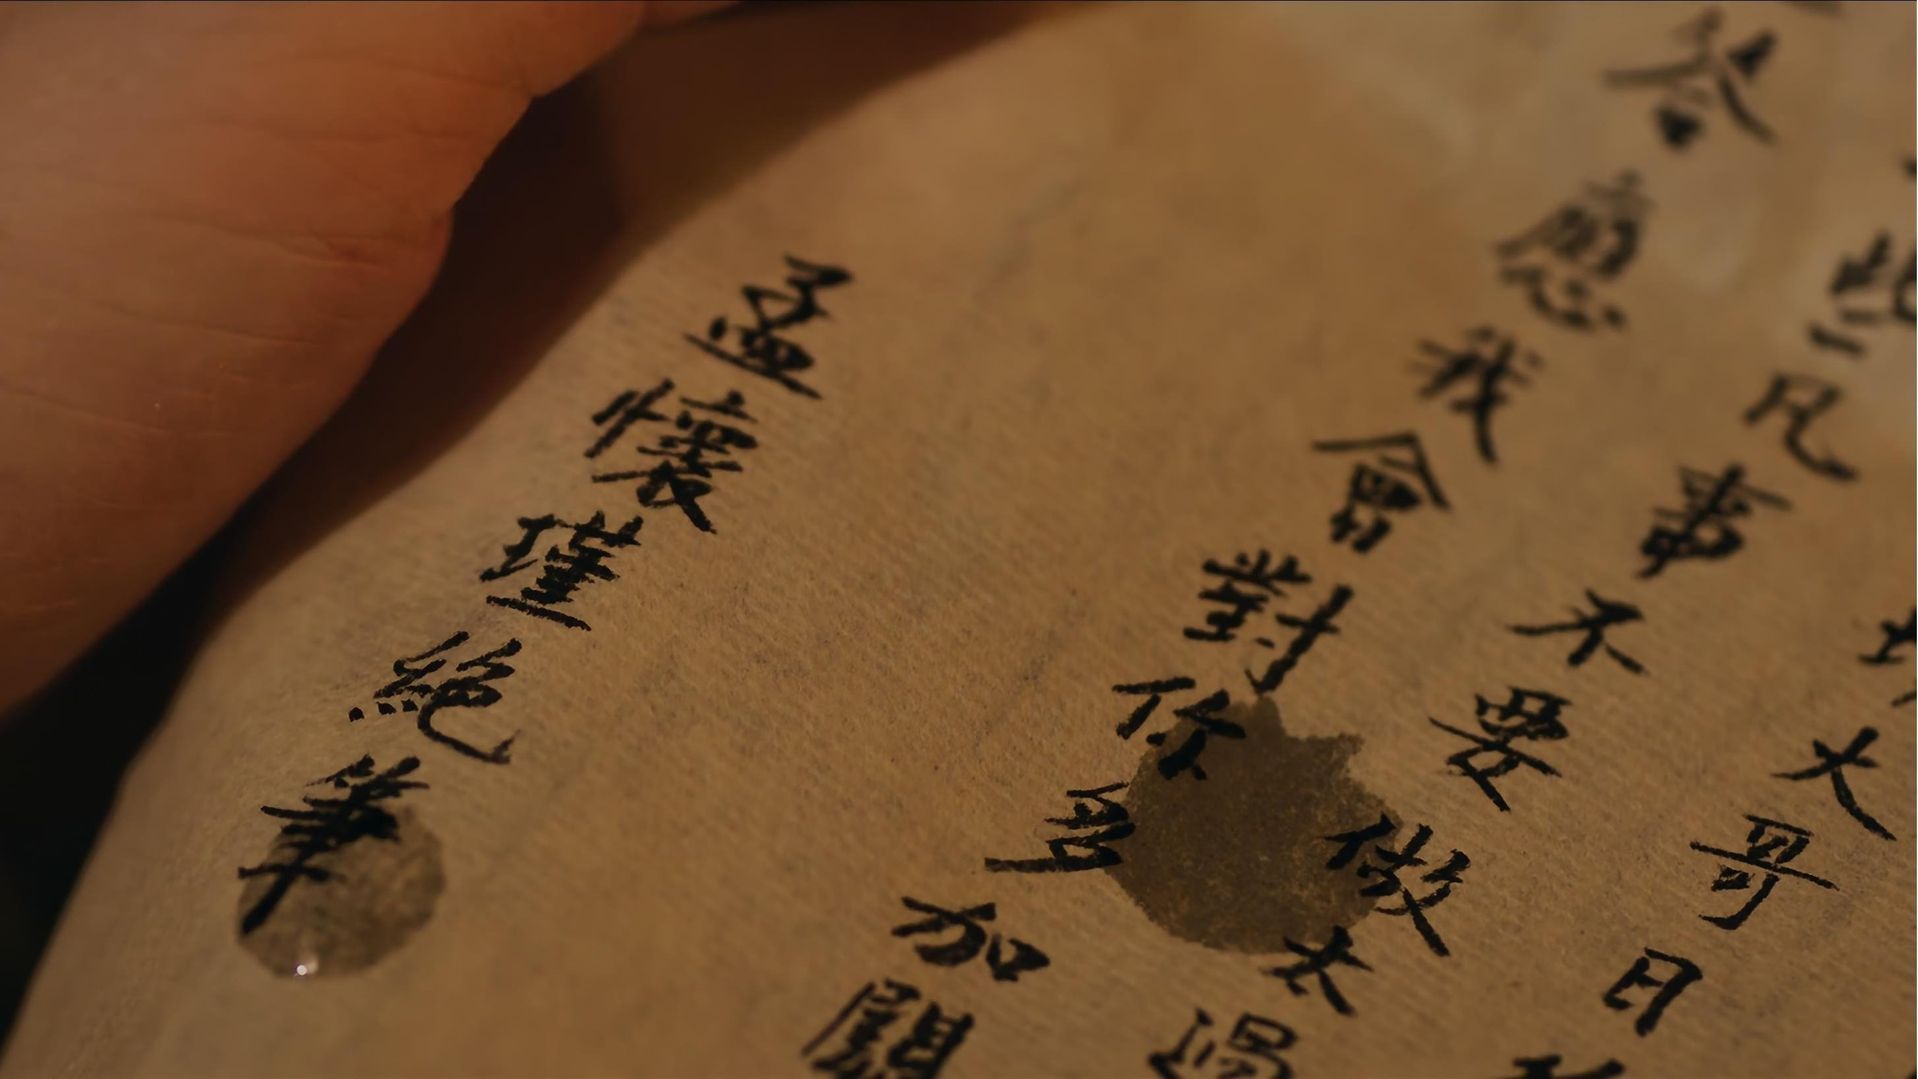 大哥日
些凡事不要做太過
答應我會對你更加關
孟懷瑾絕筆